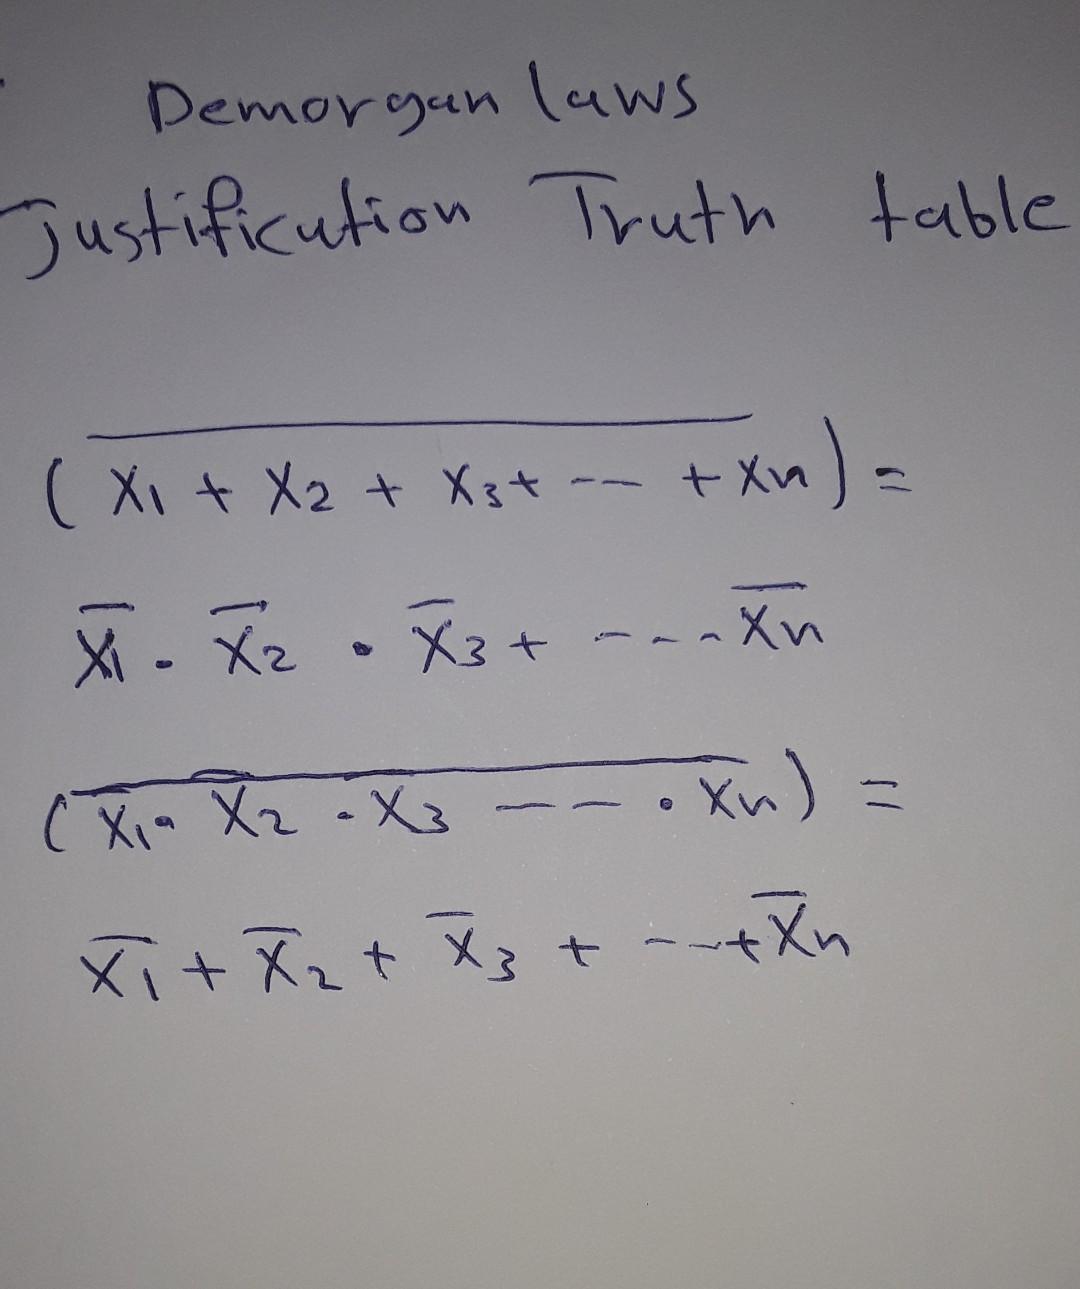 Demorgan laws
Justification Truth table
(X̅1̅ ̅+̅ ̅X̅2̅ ̅+̅ ̅X̅3̅ ̅+̅ ̅-̅-̅ ̅+̅ ̅X̅n̅) =
X̅1 . X̅2 . X̅3 + ---- X̅n
(X̅1̅ ̅.̅ ̅X̅2̅ ̅.̅ ̅X̅3̅ ̅-̅-̅-̅ ̅.̅ ̅X̅n̅) =
X̅1 + X̅2 + X̅3 + --- + X̅n